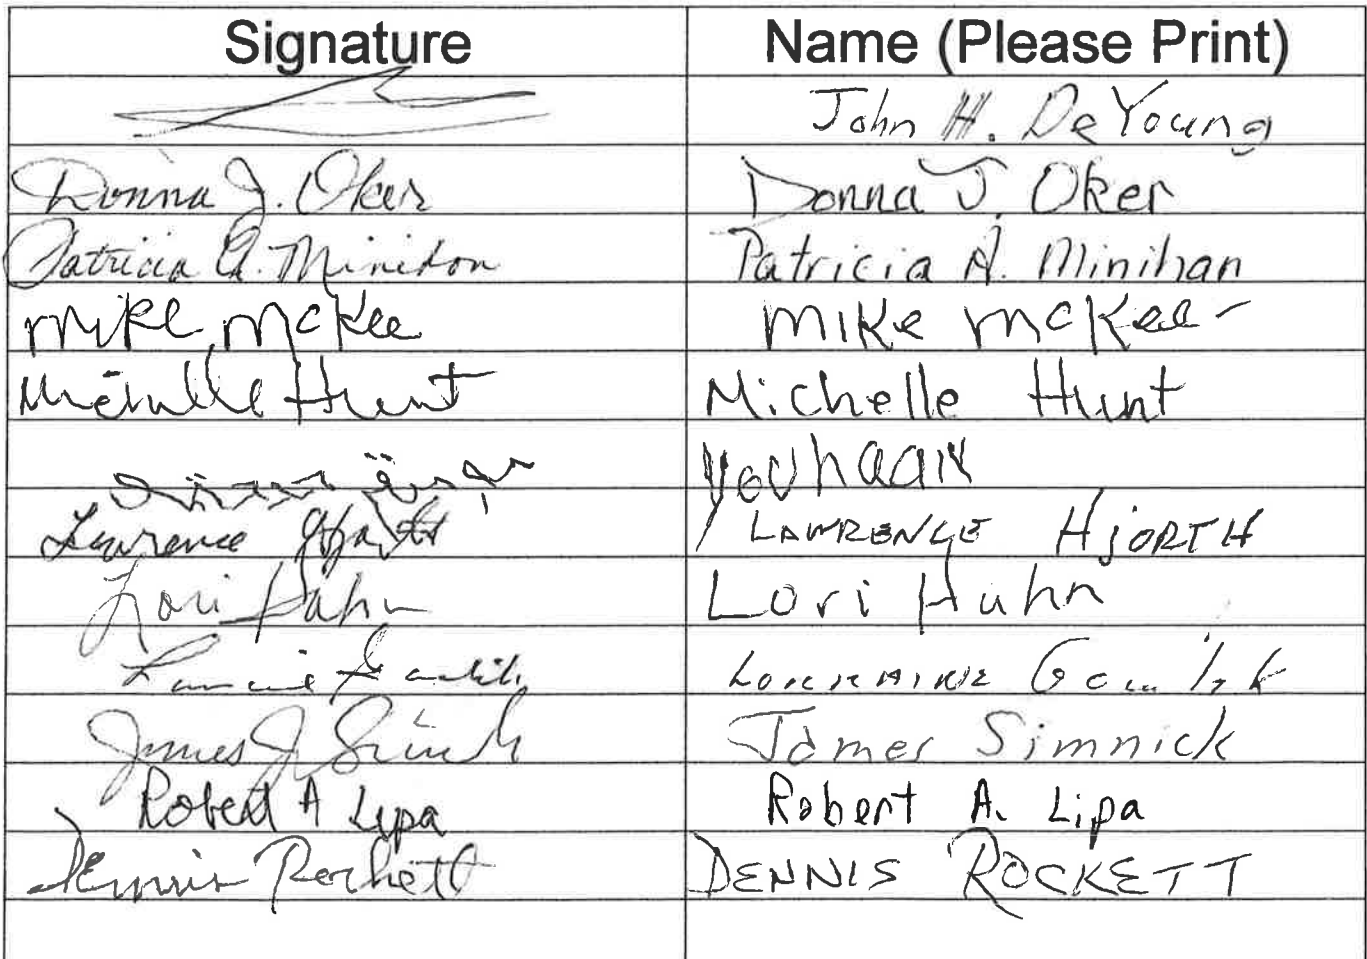 Signature Name (Please Print)
John H. DeYoung
Donna J. Oker Donna J. Oker
Patricia A. Minihan Patricia A. Minihan
Mike McKee Mike McKee
Michelle Hunt Michelle Hunt
Youhaan
Lawrence Hjorth LAWRENCE HJORTH
Lori Huhn Lori Huhn
Lorraine
James J. Simnick James Simnick
Robert A Lipa Robert A. Lipa
Dennis Rockett DENNIS ROCKETT